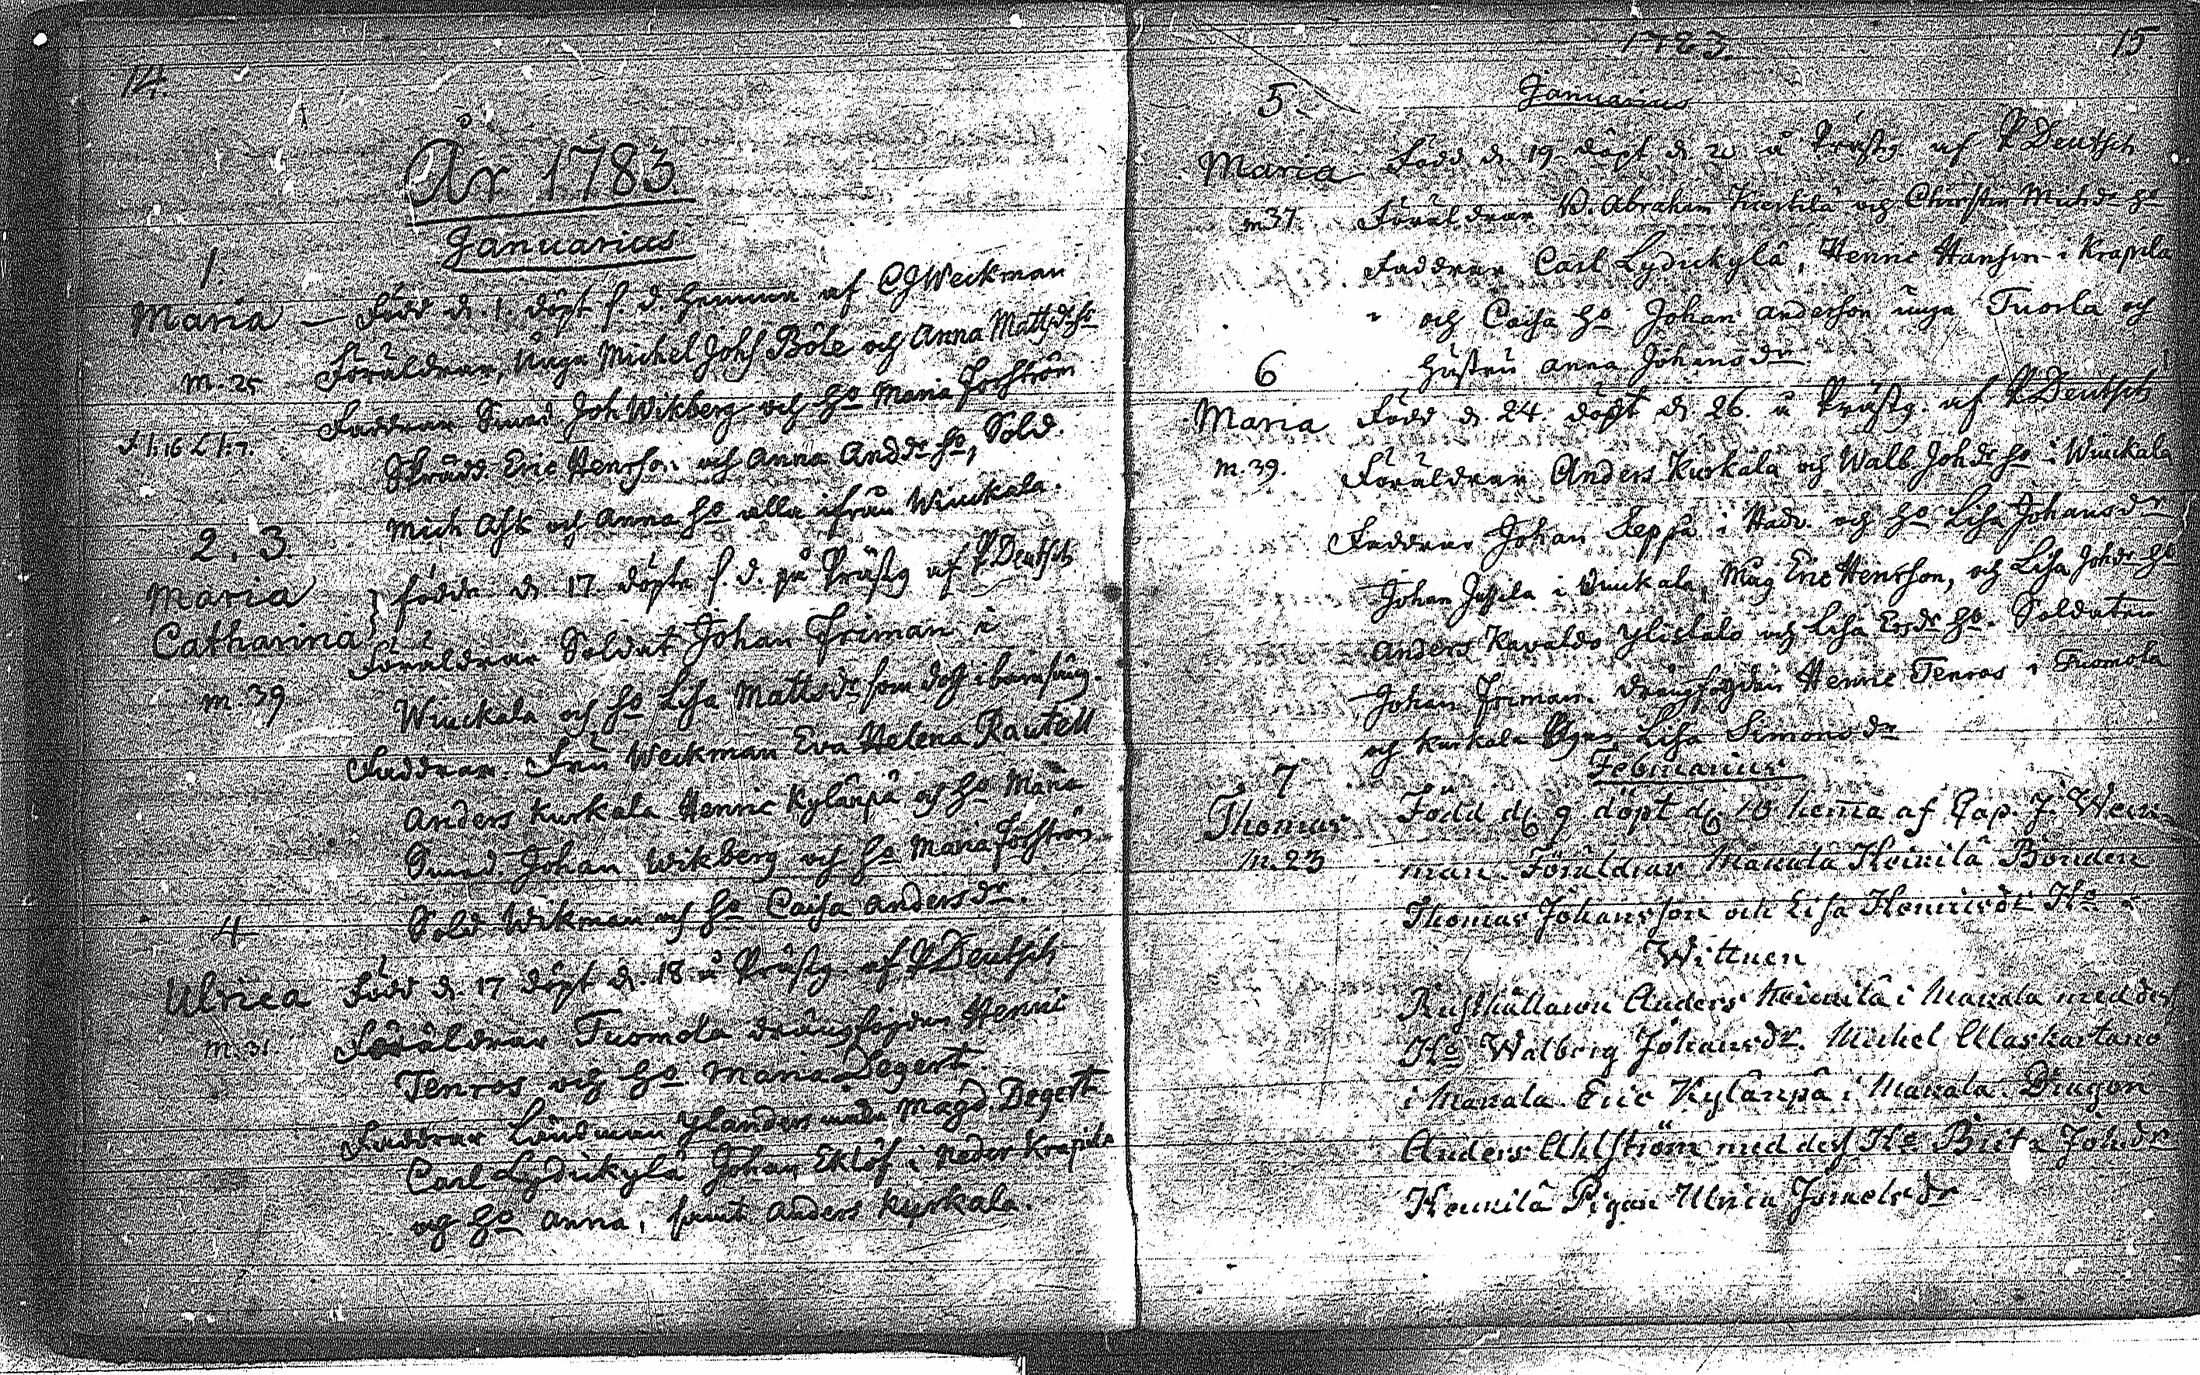 14.
År 1783.
Januarius.
1.
Maria — Född d. 1. döpt s. d. hemma af CJWeckman
m. 25 Föräldrar, Unga Michel Johs Böle och Anna Mattsdr ho
Faddrar Smed. Joh Wikberg och ho Maria Forsström
Skrädd. Eric Henrson och Anna Anddr ho, Sold.
Mich Ask och Anna ho alla ifrån Wiuckala.
2. 3
Maria
Catharina
födde d 17 döpte s. d. på Prästg af P Deutsch
Föräldrar Soldat Johan Friman i
m. 39 Wiuckala och ho Lisa Mattsdr som dog i barnsäng.
Faddrar. Fru Weckman Eva Helena Rautell
Anders Kurkala Henric Kylänpä och ho Maria
Smed. Johan Wikberg och ho Maria Forsström
Sold Wikman och ho Caisa Andersdr.
4
Ulrica Född d. 17 döpt d. 18 å Prästg af P Deutsch
m. 31. Föräldrar Tuomola drängfogden Henric
Tenros och ho. Maria Degert.
Faddrar Länsman Ylanders Magd. Degert
Carl Lydickylä Johan Eklöf i Neder Krapila
och ho Anna, samt Anders Kurkala.
1783. 15
Januarius
5
Maria Född d. 19 döpt d. 20 å Prästg. af P Deutsch
m37. Föräldrar Abraham och Christin Michsdr ho
Faddrar Carl Lydickylä, Henric Hanson i Krapila
och Caisa ho Johan Anderson unga Tuorla och
Hustru Anna Johansdr
6
Maria Född d. 24 döpt d 26. å Prästg. af P Deutsch
m. 39. Föräldrar Anders Kurkala och Walb. Johdr ho i Wiuckala
Faddrar Johan Seppä i och ho Lisa Johansdr
Johan i Wiuckala, Eric Henrson, och Lisa Johdr ho
Anders och Lisa Ersdr ho. Soldaten
Johan Friman. drängfogden Henric Tenros i Tuomola
och Kurkala Lisa Simonsdr
Februarius
7
Thomas Född d. 9 döpt d. 10 hema af Cap. J. Weck-
m. 23 man. Föräldrar Manala Heinilä Bonden
Thomas Johansson och Lisa Henricsdr Ho
Wittnen
Rusthållaren Anders Heinilä i Manala med dess
Ho Walborg Johansdr. Michel Alaskartano
i Manala. Eric Kylänpä i Manala. Dragon
Anders Ahlström med dess Ho Brita Johsdr
Heinilä Pigan Ulrica Jsraelsdr